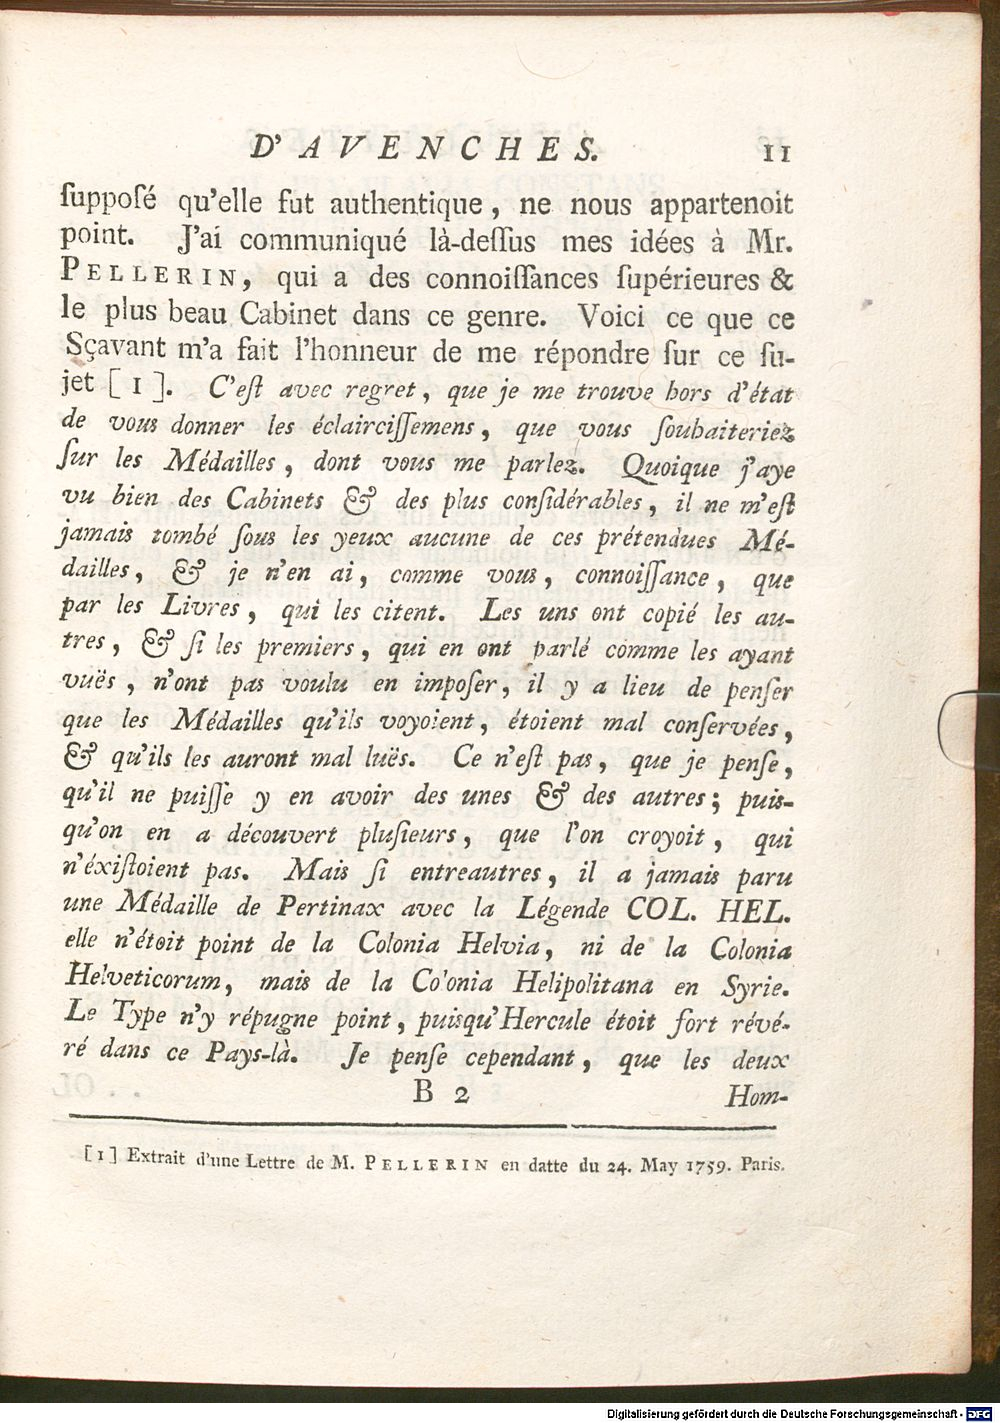 D' A V E N C H E S. 11
ſuppoſé qu'elle fut authentique, ne nous appartenoit
point. J'ai communiqué là-deſſus mes idées à Mr.
PELLERIN, qui a des connoiſſances ſupérieures &
le plus beau Cabinet dans ce genre. Voici ce que ce
Sçavant m'a fait l'honneur de me répondre ſur ce ſu-
jet [1]. C'eſt avec regret, que je me trouve hors d'état
de vous donner les éclairciſſemens, que vous ſouhaiteriez
ſur les Médailles, dont vous me parlez. Quoique j'aye
vu bien des Cabinets & des plus conſidérables, il ne m'eſt
jamais tombé ſous les yeux aucune de ces prétendues Mé-
dailles, & je n'en ai, comme vous, connoiſſance, que
par les Livres, qui les citent. Les uns ont copié les au-
tres, & ſi les premiers, qui en ont parlé comme les ayant
vuës, n'ont pas voulu en impoſer, il y a lieu de penſer
que les Médailles qu'ils voyoient, étoient mal conſervées,
& qu'ils les auront mal luës. Ce n'eſt pas, que je penſe,
qu'il ne puiſſe y en avoir des unes & des autres; puis-
qu'on en a découvert pluſieurs, que l'on croyoit, qui
n'éxiſtoient pas. Mais ſi entreautres, il a jamais paru
une Médaille de Pertinax avec la Légende COL. HEL.
elle n'étoit point de la Colonia Helvia, ni de la Colonia
Helveticorum, mais de la Co'onia Helipolitana en Syrie.
Le Type n'y répugne point, puisqu'Hercule étoit fort révé-
ré dans ce Pays-là. Je penſe cependant, que les deux
B 2 Hom-
[1] Extrait d'une Lettre de M. PELLERIN en datte du 24. May 1759. Paris.
Digitalisierung gefördert durch die Deutsche Forschungsgemeinschaft - DFG